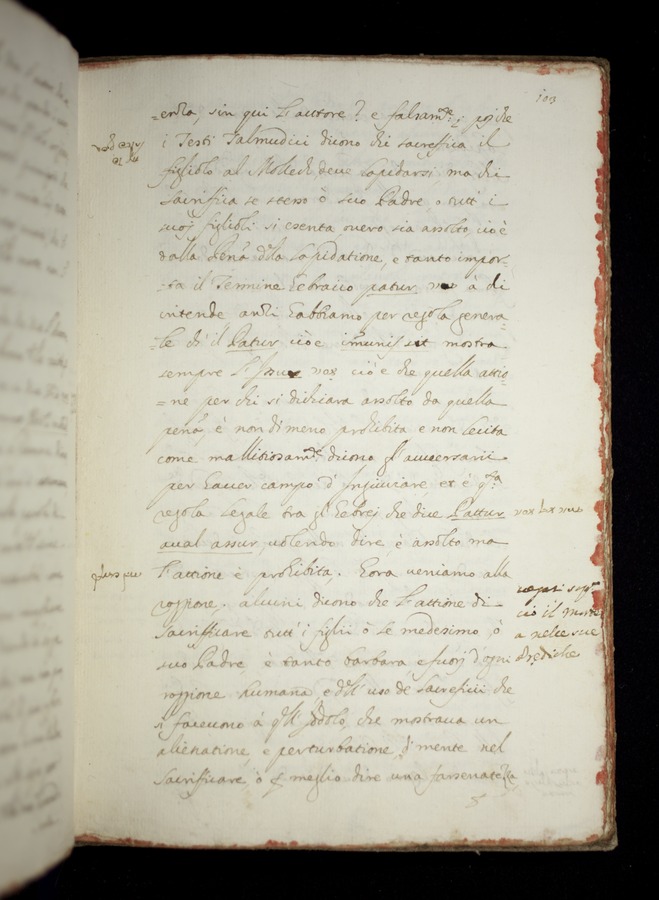 103
=enza, sin qui l'autore? e falsam.te; poiche
i Testi Talmudici dicono chi sacrifica il
figliolo al Moloch, deve lapidarsi ma chi
sacrifica se stesso ò suo Padre, o tutti i
suoj figlioli si esenta, overo sia assolto, cioè
dalla pena della lapidatione, e tanto impor-
-ta il Termine Hebraico patur à di
intende anzi habbiamo per regola genera-
-le ch'il Patur cioè imunis sit mostra
sempre l' cioè che quella attio-
=ne per chi si dichiara assolto da quella
pena, è nondimeno prohibita e non lecita
come mallitiosam.te dicono gl'avversarii
per haver campo d'ingiuriare, et è q.ta
regola legale tra gl'Hebrej che dice Pattur
aval assur, volendo dire, è assolto ma
l'attione è prohibita. Hora veniamo alla
raggione. alcuni dicono che l'attione di
sacrificare tutt'i figlii ò se medesimo, ò
suo Padre, è tanto barbara, e fuorj d'ogni
raggione humana, e dell'uso de sacrificii che
si facevono à quell'Idolo, che mostrava un
alienatione, e perturbatione di mente nel
sacrificare, ò per meglio dire una farsenate
פטור אבל אסור
vegasi sop.a
ciò il
a nelle sue
Prediche